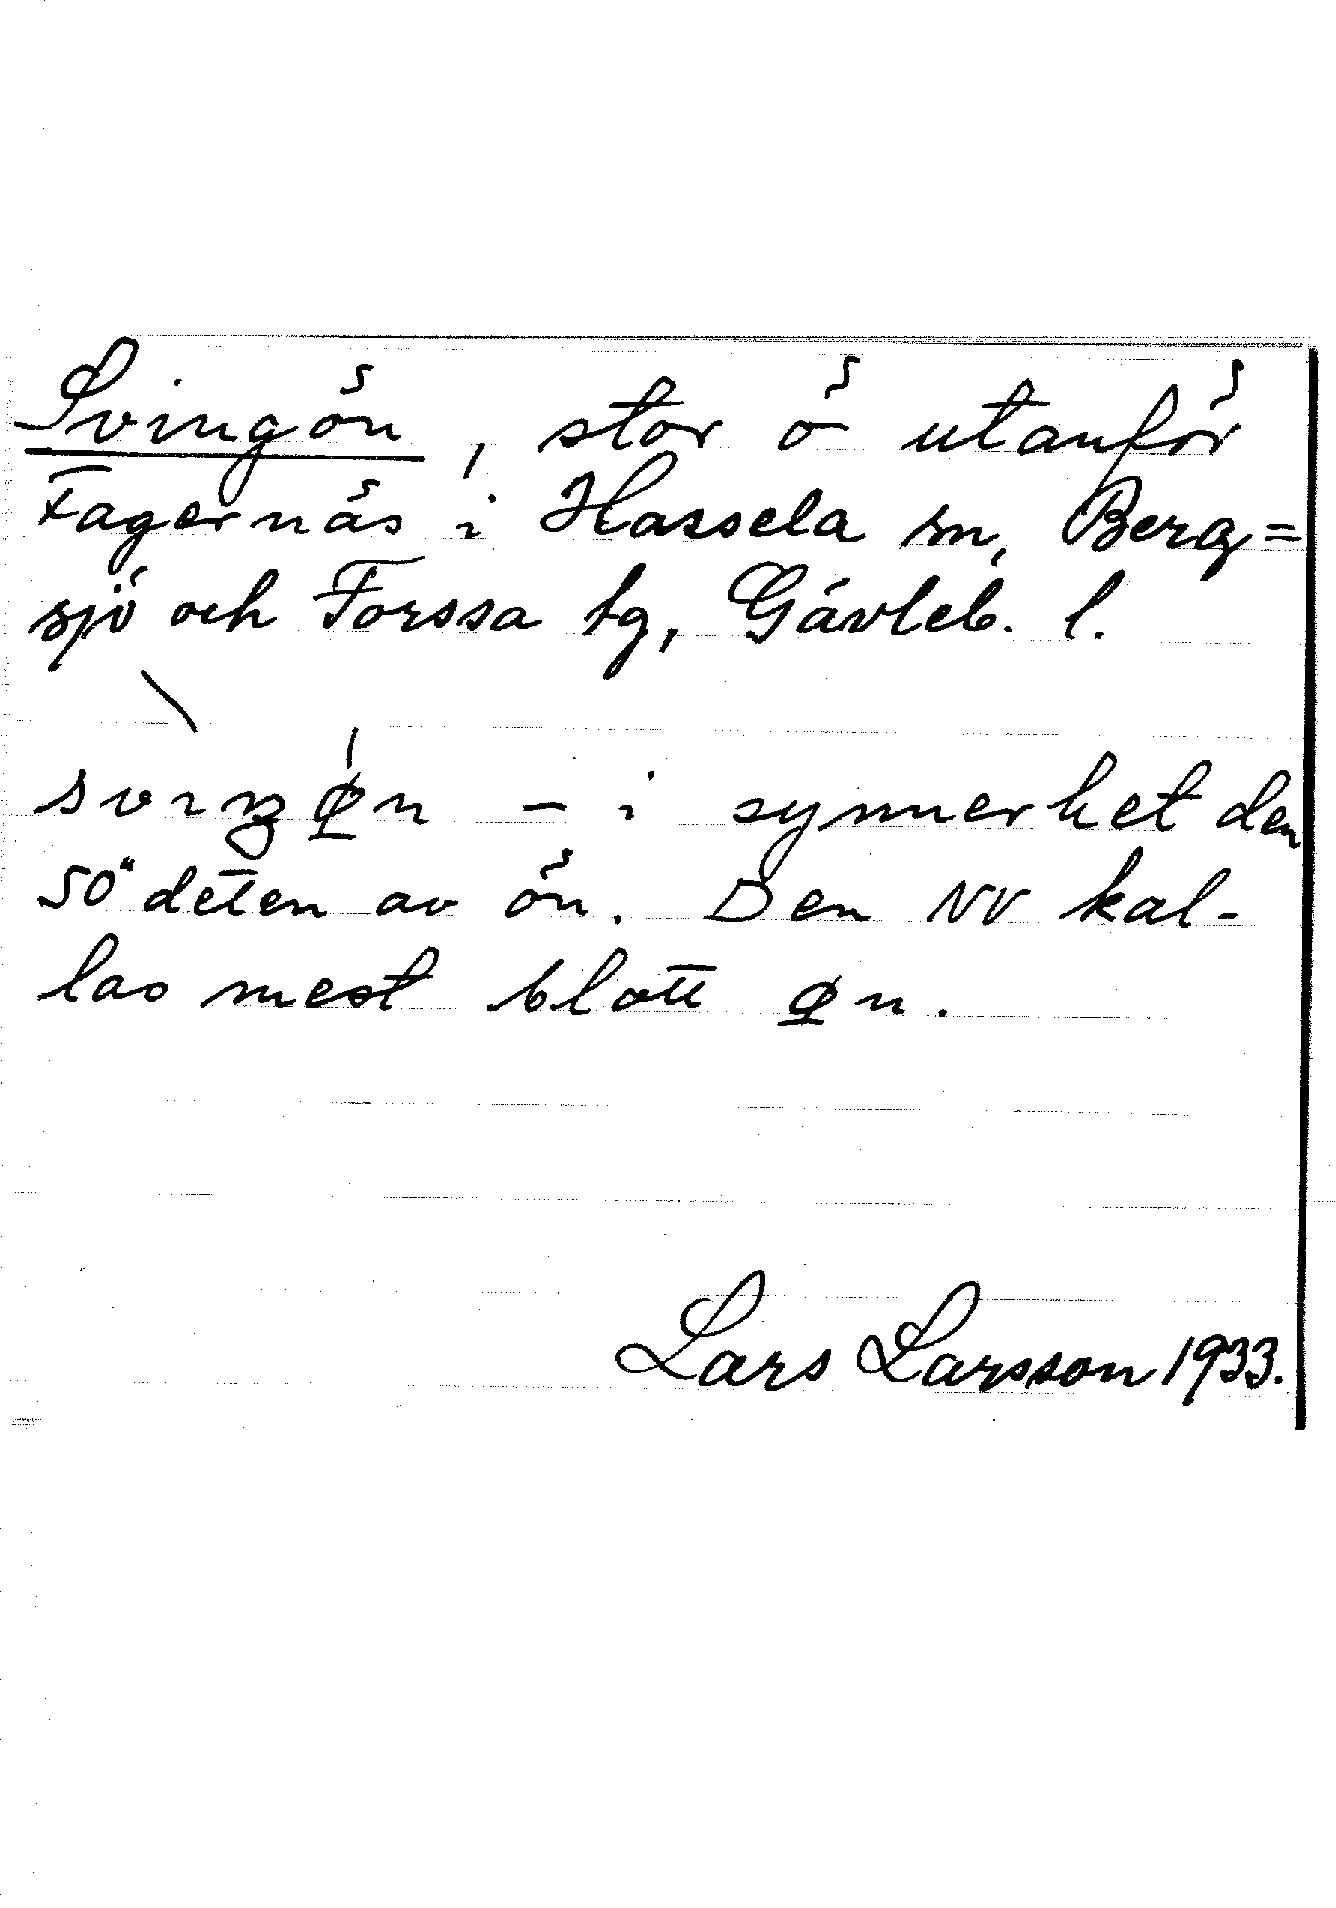 Svingön, stor ö utanför
Fagernäs i Hassela sn, Berg=
sjö och Forssa tg, Gävleb. l.
sviŋø̲n – i synnerhet den
SO deten av ön. Den NV kal-
las mest blott ø̲n.
Lars Larsson 1933.